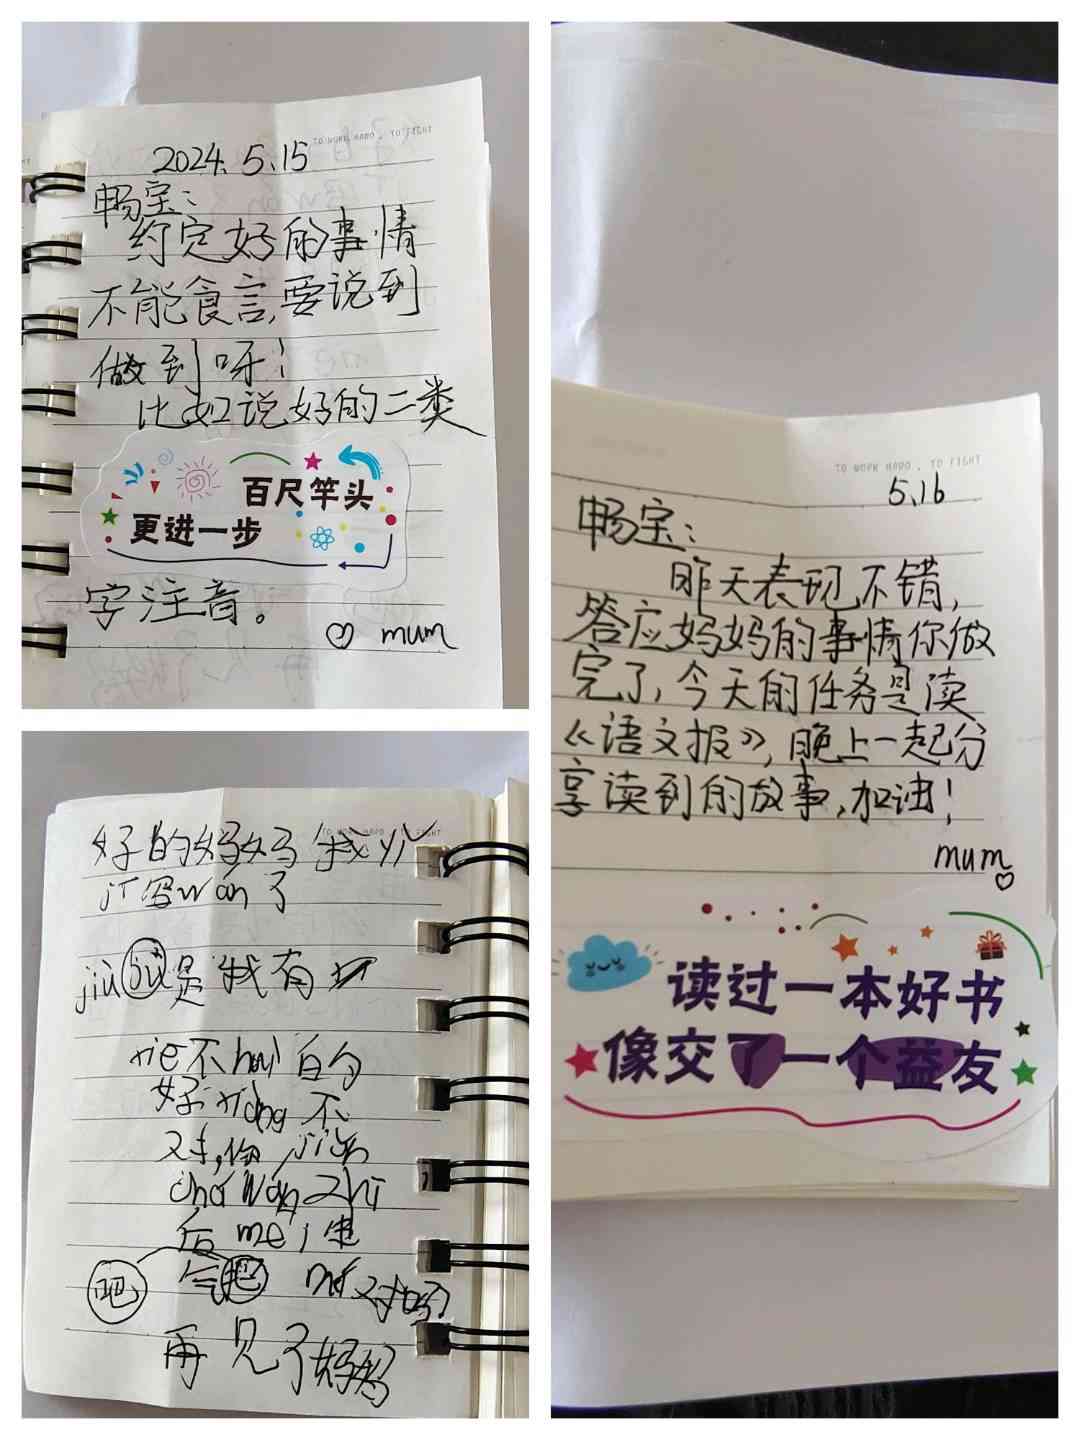 TO WORK HARD , TO FIGHT
2024.5.15
畅宝：
约定好的事情
不能食言,要说到
做到呀！
比如说好的二类
百尺竿头
更进一步
字注音。
♡ mum
TO WORK HARD , TO FIGHT
好的妈妈我yǐ
jī写wán了
jiù bú是我有
xiē不huì 白勺
好xiàng不
对,你jiǎn
chá wán zhī
后méi生
气吧
吧
对吗
再见了妈妈
TO WORK HARD , TO FIGHT
5.16
畅宝：
昨天表现不错,
答应妈妈的事情你做
完了,今天的任务是读
《语文报》,晚上一起分
享读到的故事,加油！
mum
♡
读过一本好书
像交了一个益友